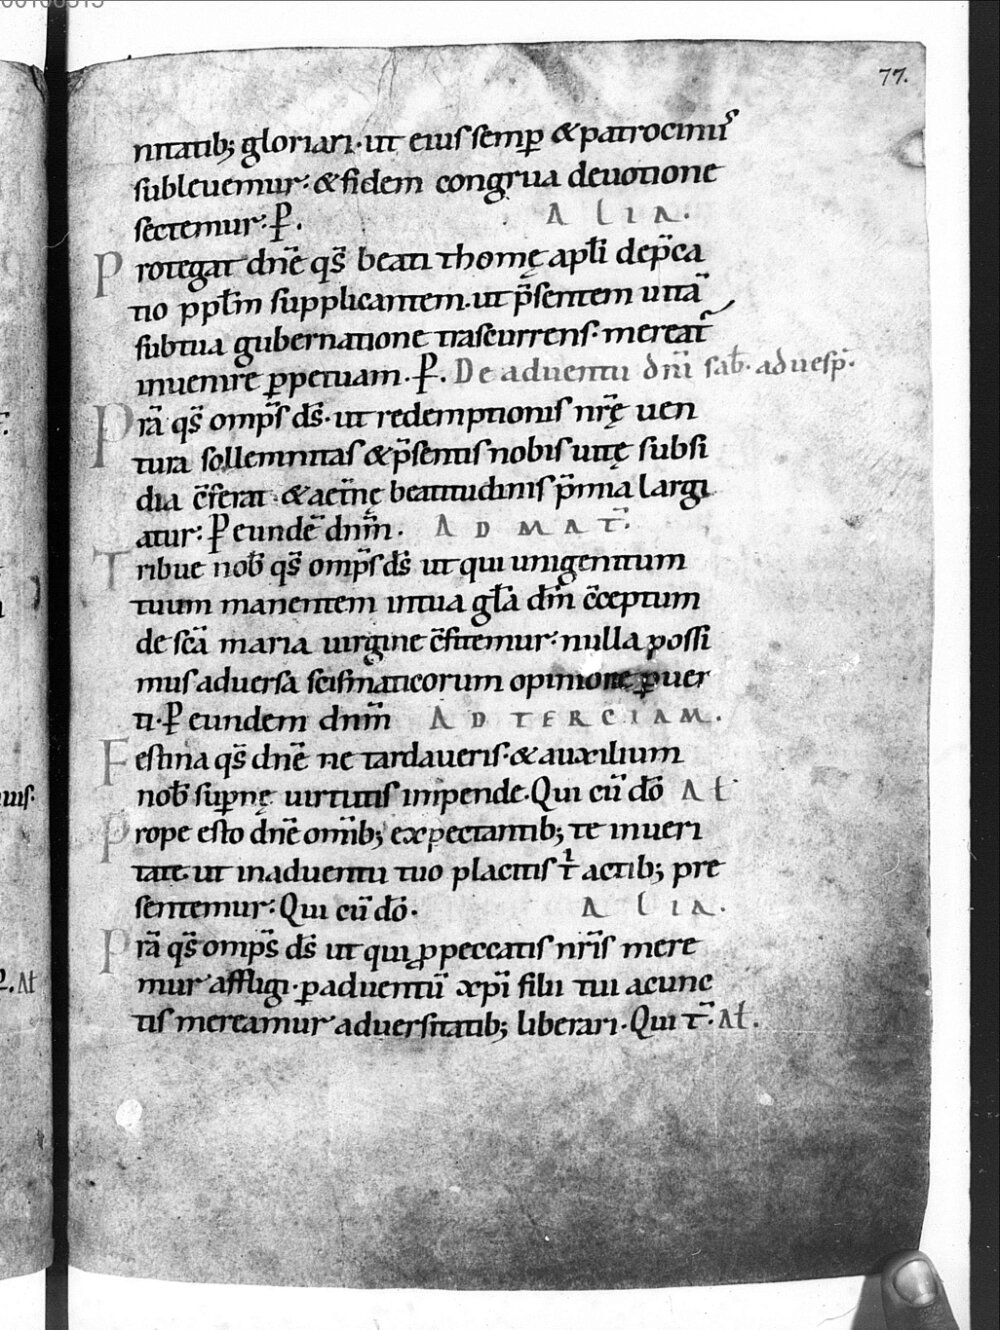 77.
nitatib; gloriari· ut eius semp̱ & patrociniis
subleuemur: & fidem congrua deuotione
sectemur: P̱. ALIA.
Protegat dn̄e qs̄ beati thomę apłi dep̄ca
tio ppłm supplicantem. ut p̄sentem uitā
sub tua gubernatione trascurrens· mereat̄
inuenire p̱petuam. P̱. De aduentu dn̄i sab̄. ad uesp̄.
Prā qs̄ omp̄s ds̄· ut redemptionis nr̄ę uen
tura sollemnitas & p̄sentis nobis uitę subsi
dia c̄ferat & aet̄nę beatitudinis p̄mia largi
atur: P̱ eundē dn̄m. AD MAT̄.
Tribue nob̄ qs̄ omp̄s ds̄ ut qui unigenitum
tuum manentem in tua gła dm̄ c̄ceptum
de sc̄a maria uirgine c̄fitemur: nulla possi
mus aduersa scismaticorum opinione p̱uer
ti· P̱ eundem dnm̄ AD TERCIAM.
Festina qs̄ dn̄e ne tardaueris· & auxilium
nob̄ sup̱nę uirtutis impende. Qui cū dō Ał
Prope esto dn̄e omīb; expectantib; te in ueri
tate. ut in aduentu tuo placitis t̄ actib; pre
sentemur: Qui cū dō. ALIA.
Prā qs̄ omp̄s ds̄ ut qui ꝓ peccatis nr̄is mere
mur affligi· p̱ aduentū xp̄i filii tui a cunc
tis mereamur aduersitatib; liberari· Qui t̄. Ał.
uis.
Ał